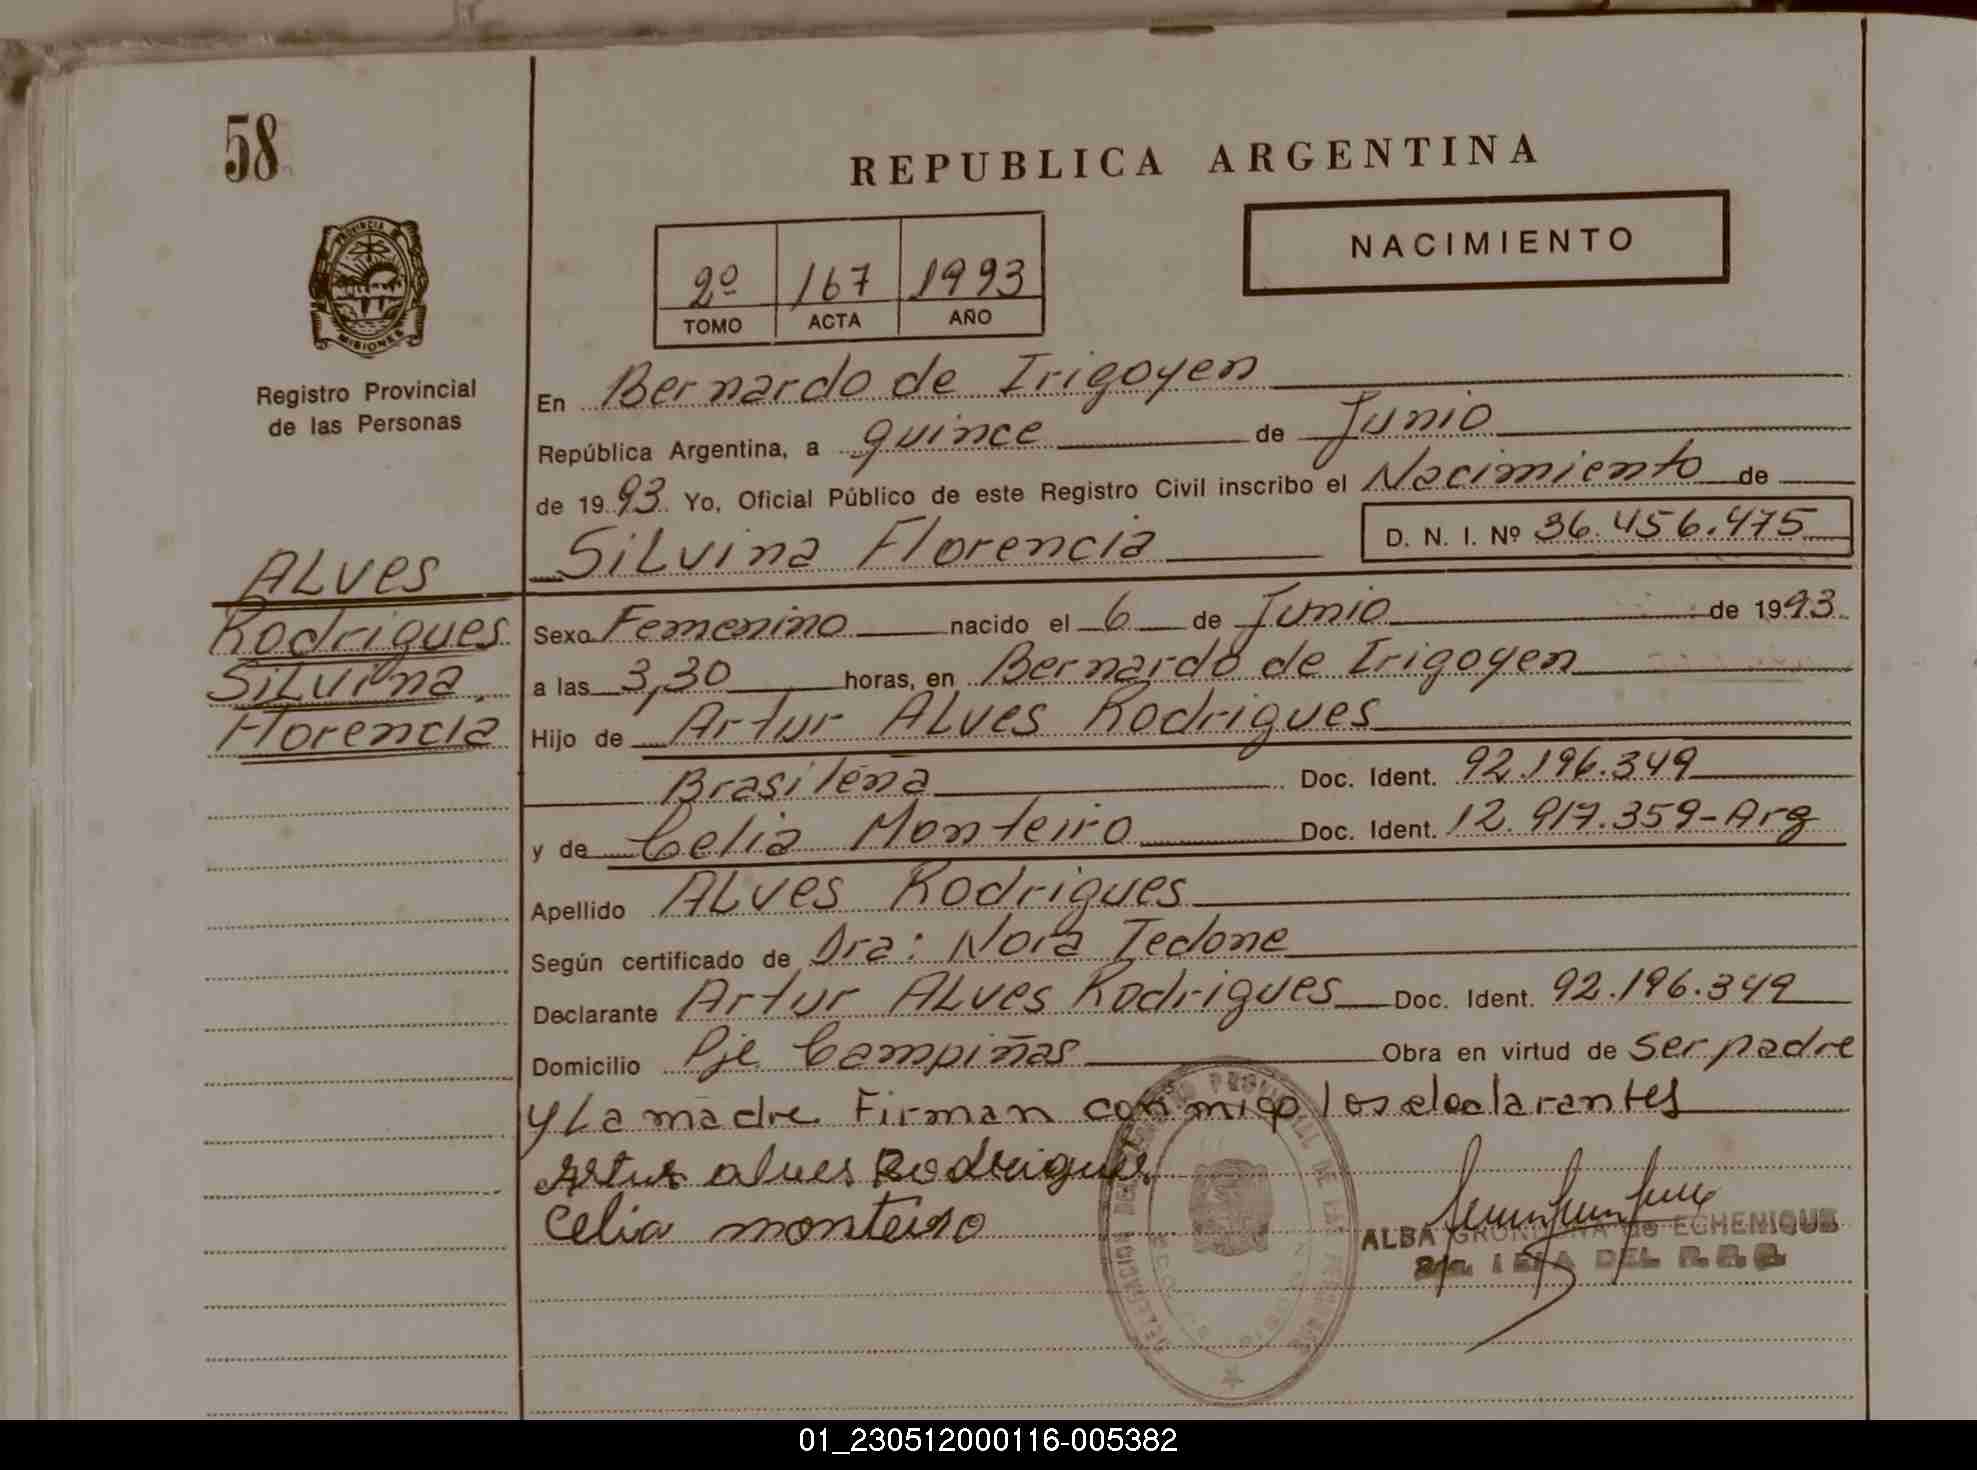 58
REPUBLICA ARGENTINA
NACIMIENTO
PROVINCIA
MISIONES
2º 167 1993
TOMO ACTA AÑO
Registro Provincial
de las Personas
En Bernardo de Irigoyen
República Argentina, a quince de Junio
de 19 93 Yo, Oficial Público de este Registro Civil inscribo el Nacimiento de
Silvina Florencia D. N. I. Nº 36.456.475
ALVES
Rodrigues
Silvina
Florencia
Sexo Femenino nacido el 6 de Junio de 1993
a las 3,30 horas, en Bernardo de Irigoyen
Hijo de Artur ALves Rodrigues
Brasileña Doc. Ident. 92.196.349
y de Celia Monteiro Doc. Ident. 12.917.359-Arg
Apellido ALves Rodrigues
Según certificado de Dra: Nora Tedone
Declarante Artur ALves Rodrigues Doc. Ident. 92.196.349
Domicilio Pje Campiñas Obra en virtud de ser padre
y La madre Firman conmigo los declarantes
Artur alves Rodrigues
Celia monteiro
ALBA GRONDONA de ECHENIQUE
DEL R.P.P.
01_230512000116-005382